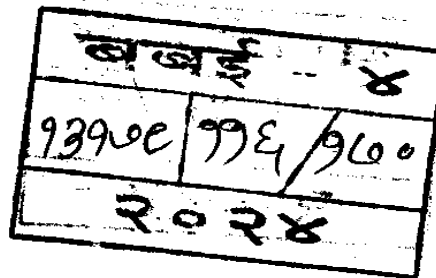 बबई - ४
१३१७९ ११६/१७०
२०२४